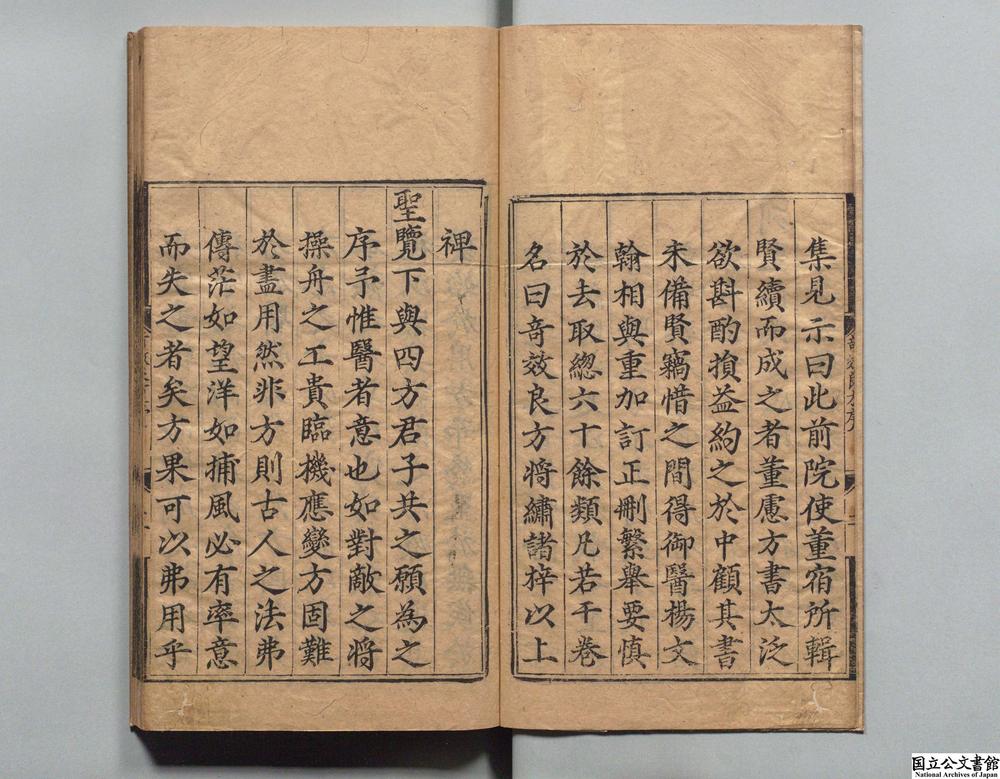 集見示曰此前院使董宿所輯
賢續而成之者董慮方書太泛
欲斟酌損益約之於中顧其書
未備賢竊惜之間得御醫楊文
翰相與重加訂正刪繁舉要慎
於去取緫六十餘類凡若干卷
名曰奇效良方将繡諸梓以上
裨
聖覽下與四方君子共之願為之
序予惟醫者意也如對敵之将
操舟之工貴臨機應變方固難
於盡用然非方則古人之法弗
傳茫如望洋如捕風必有率意
而失之者矣方果可以弗用乎
国立公文書館
National Archives of Japan